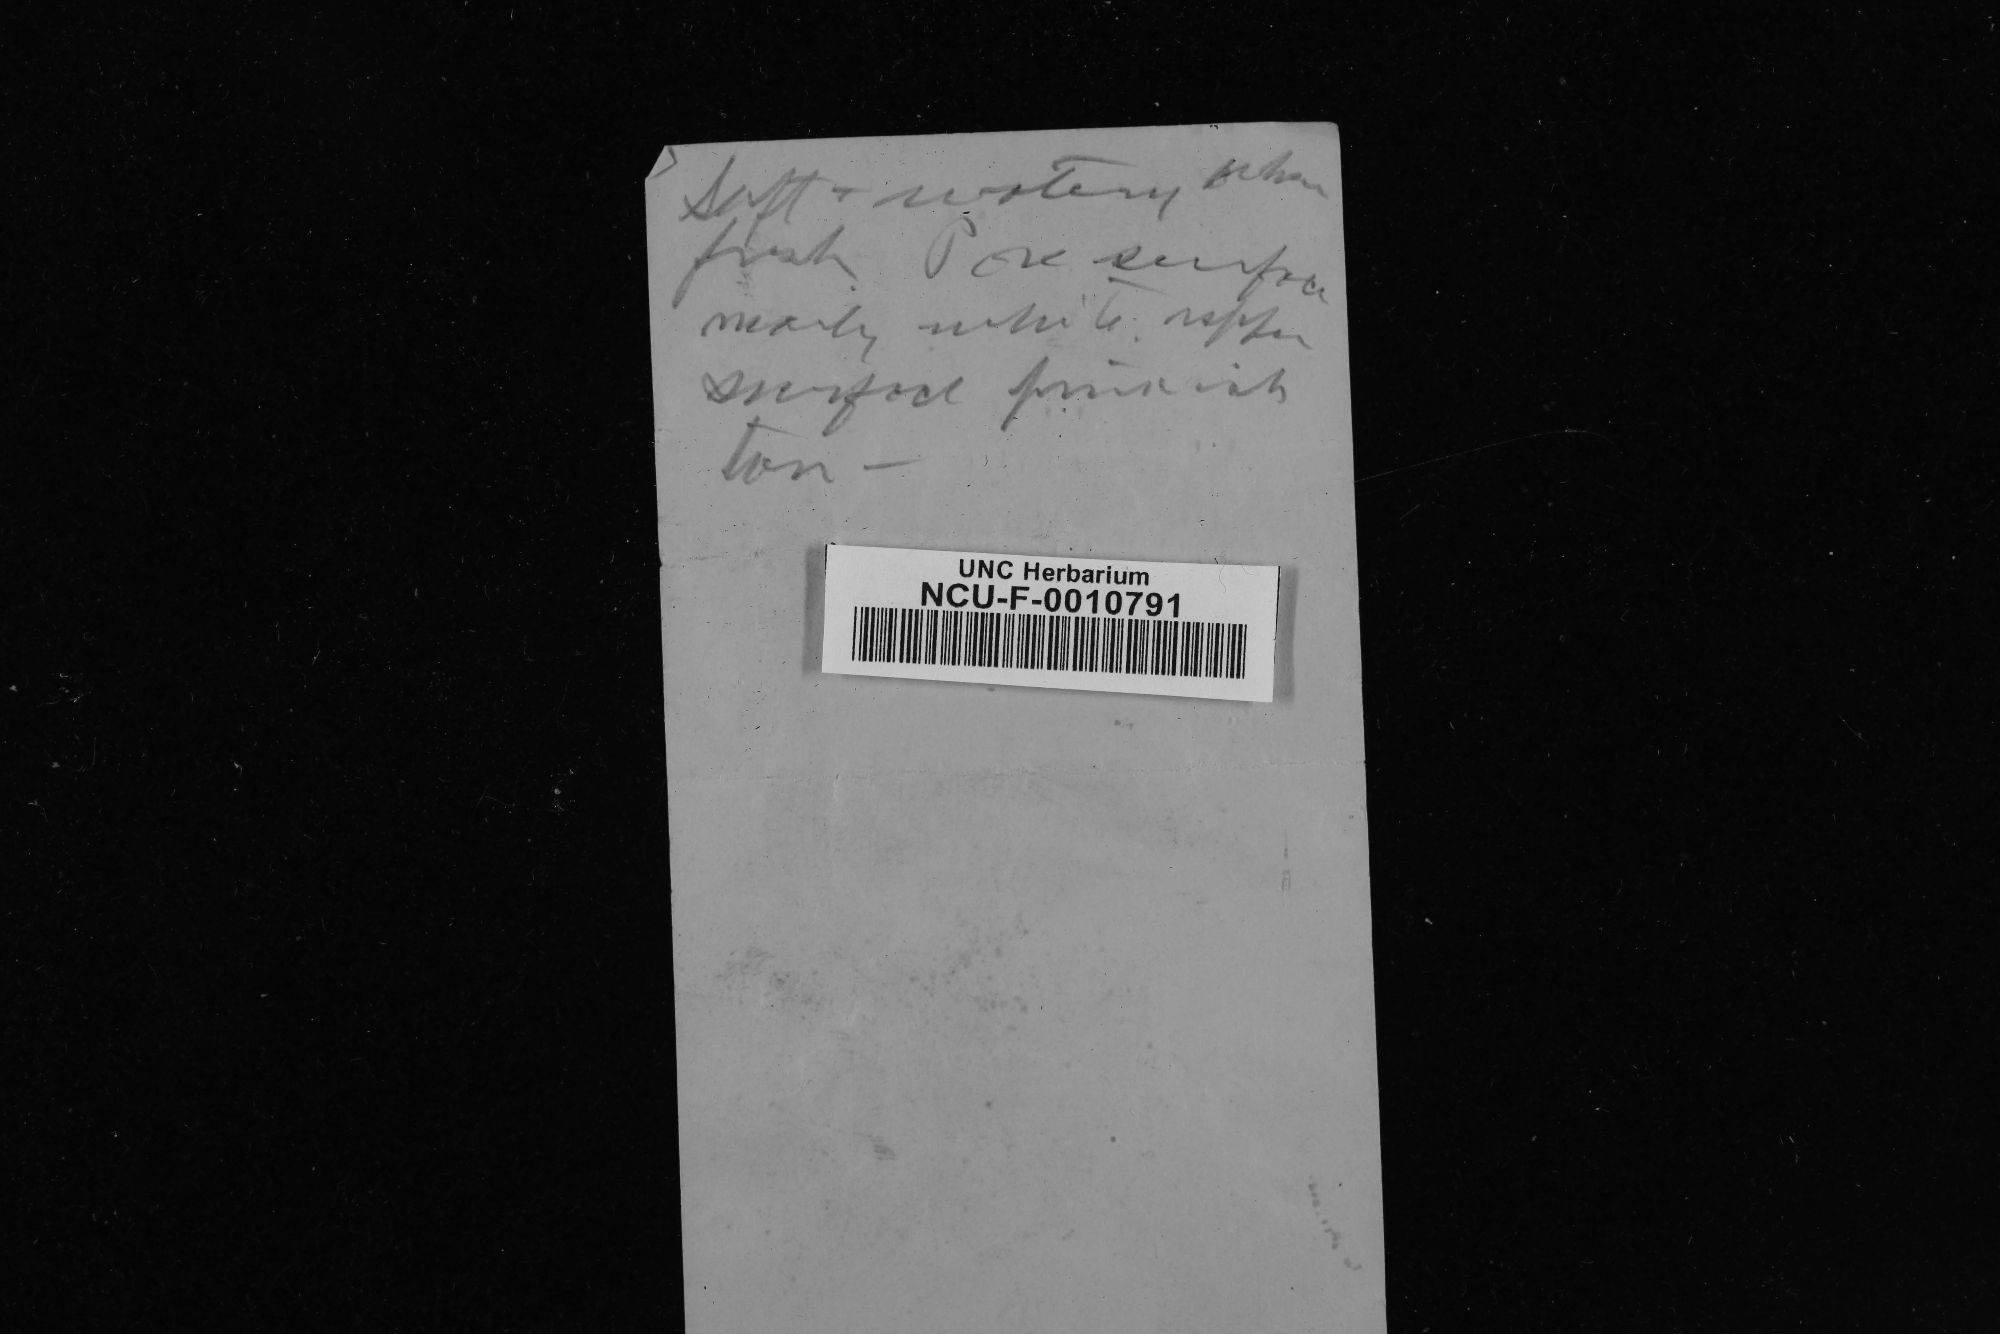 Soft + watery when
fresh. Pore surface
nearly white. upper
surface pinkish
tan —
UNC Herbarium
NCU-F-0010791